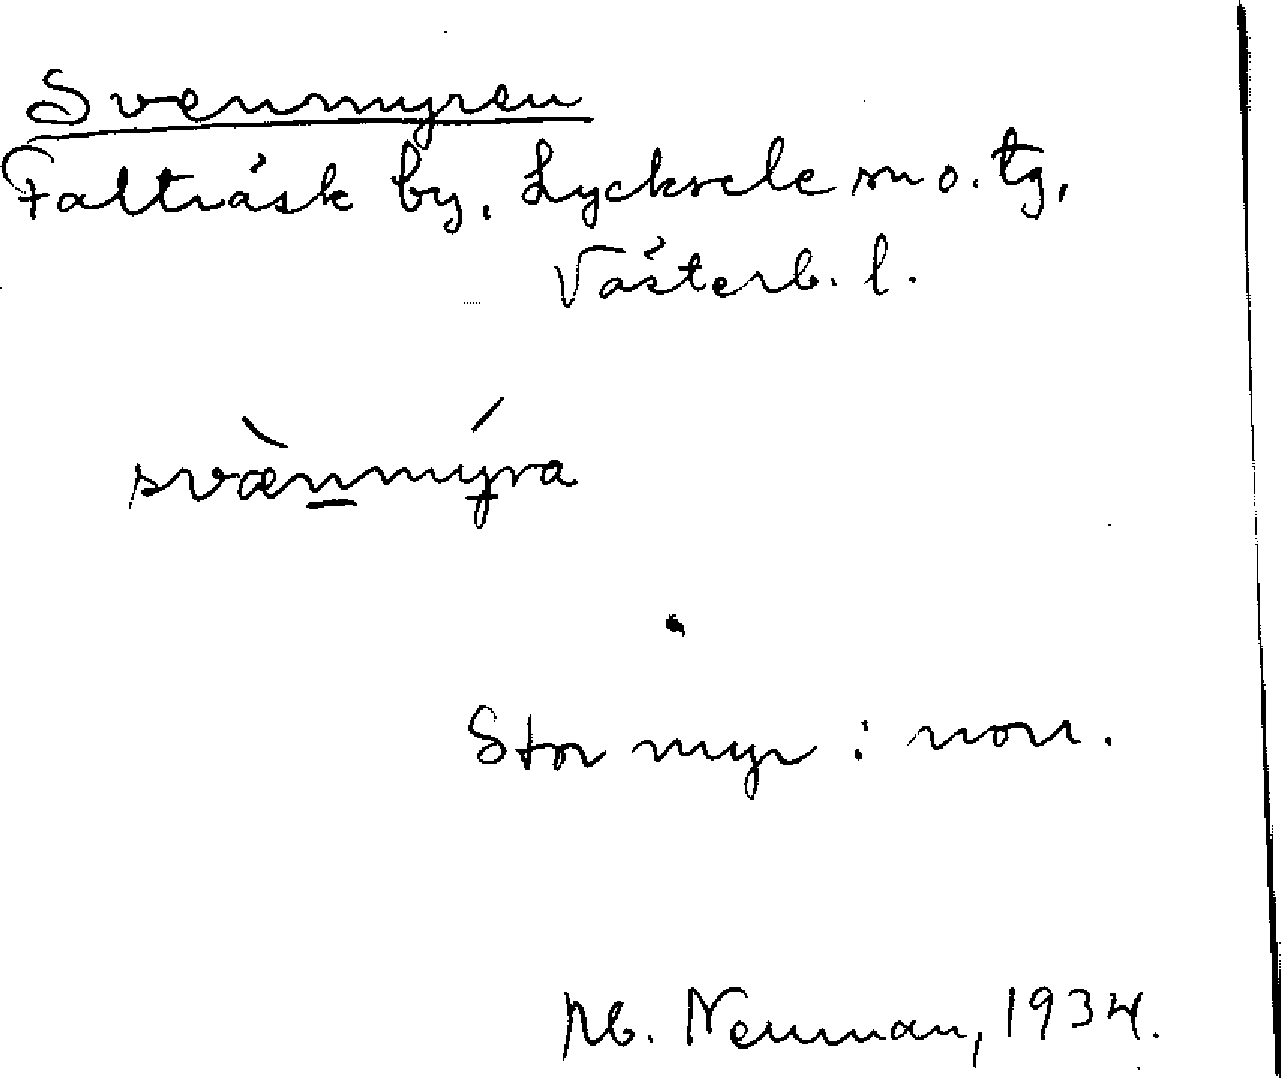 Svenmyren
Falträsk by, Lycksele sn o. tg,
Västerb. l.
svæ̀n̲mýra
Stor myr i norr.
Nb. Neuman, 1934.